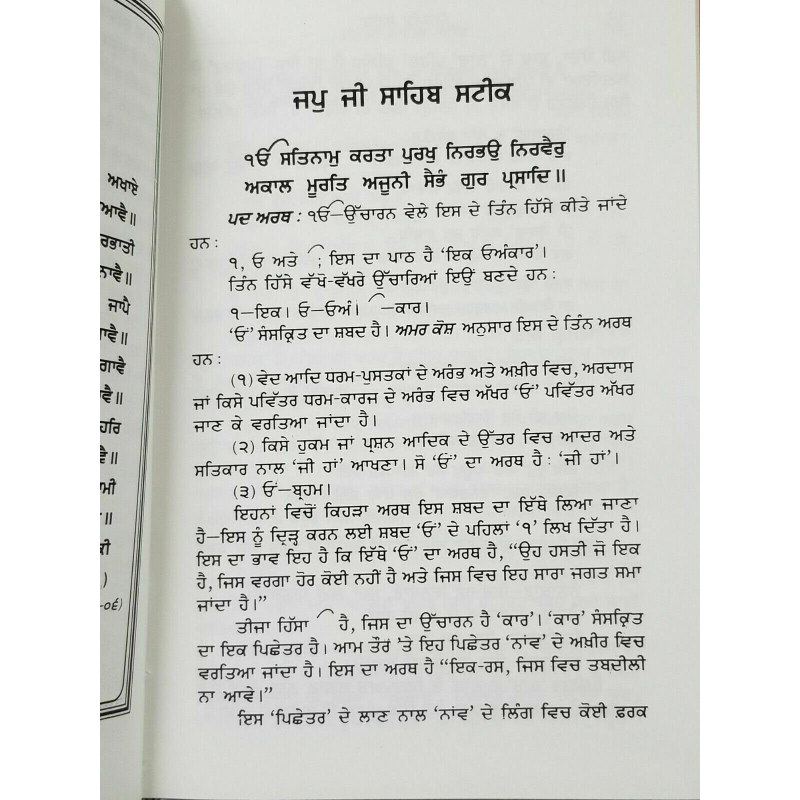 ਅਖਾਏ
ਆਵੈ॥
ਰਭਾਤੀ
ਨਾਵੈ॥
ਜਾਪੈ
ਾਵੈ॥
ਗਾਵੈ
ਾਵੈ॥
ਹਰਿ
ਵੈ॥
ਾਮੀ
ਾ॥
ਕੀ
)
-੦੬)
ਜਪੁ ਜੀ ਸਾਹਿਬ ਸਟੀਕ
ੴ ਸਤਿਨਾਮੁ ਕਰਤਾ ਪੁਰਖੁ ਨਿਰਭਉ ਨਿਰਵੈਰੁ
ਅਕਾਲ ਮੂਰਤਿ ਅਜੂਨੀ ਸੈਭੰ ਗੁਰ ਪ੍ਰਸਾਦਿ॥
ਪਦ ਅਰਥ : ੴ—ਉੱਚਾਰਨ ਵੇਲੇ ਇਸ ਦੇ ਤਿੰਨ ਹਿੱਸੇ ਕੀਤੇ ਜਾਂਦੇ
ਹਨ :
੧, ਓ ਅਤੇ ; ਇਸ ਦਾ ਪਾਠ ਹੈ ‘ਇਕ ਓਅੰਕਾਰ’।
ਤਿੰਨ ਹਿੱਸੇ ਵੱਖੋ-ਵੱਖਰੇ ਉੱਚਾਰਿਆਂ ਇਉਂ ਬਣਦੇ ਹਨ :
੧—ਇਕ। ਓ—ਓਅੰ। —ਕਾਰ।
‘ਓਂ’ ਸੰਸਕ੍ਰਿਤ ਦਾ ਸ਼ਬਦ ਹੈ। ਅਮਰ ਕੋਸ਼ ਅਨੁਸਾਰ ਇਸ ਦੇ ਤਿੰਨ ਅਰਥ
ਹਨ :
(੧) ਵੇਦ ਆਦਿ ਧਰਮ-ਪੁਸਤਕਾਂ ਦੇ ਅਰੰਭ ਅਤੇ ਅਖ਼ੀਰ ਵਿਚ, ਅਰਦਾਸ
ਜਾਂ ਕਿਸੇ ਪਵਿੱਤਰ ਧਰਮ-ਕਾਰਜ ਦੇ ਅਰੰਭ ਵਿਚ ਅੱਖਰ ‘ਓਂ’ ਪਵਿੱਤਰ ਅੱਖਰ
ਜਾਣ ਕੇ ਵਰਤਿਆ ਜਾਂਦਾ ਹੈ।
(੨) ਕਿਸੇ ਹੁਕਮ ਜਾਂ ਪ੍ਰਸ਼ਨ ਆਦਿਕ ਦੇ ਉੱਤਰ ਵਿਚ ਆਦਰ ਅਤੇ
ਸਤਿਕਾਰ ਨਾਲ ‘ਜੀ ਹਾਂ’ ਆਖਣਾ। ਸੋ ‘ਓਂ’ ਦਾ ਅਰਥ ਹੈ : ‘ਜੀ ਹਾਂ’।
(੩) ਓਂ—ਬ੍ਰਹਮ।
ਇਹਨਾਂ ਵਿਚੋਂ ਕਿਹੜਾ ਅਰਥ ਇਸ ਸ਼ਬਦ ਦਾ ਇੱਥੇ ਲਿਆ ਜਾਣਾ
ਹੈ—ਇਸ ਨੂੰ ਦ੍ਰਿੜ੍ਹ ਕਰਨ ਲਈ ਸ਼ਬਦ ‘ਓਂ’ ਦੇ ਪਹਿਲਾਂ ‘੧’ ਲਿਖ ਦਿੱਤਾ ਹੈ।
ਇਸ ਦਾ ਭਾਵ ਇਹ ਹੈ ਕਿ ਇੱਥੇ ‘ਓਂ’ ਦਾ ਅਰਥ ਹੈ, “ਉਹ ਹਸਤੀ ਜੋ ਇਕ
ਹੈ, ਜਿਸ ਵਰਗਾ ਹੋਰ ਕੋਈ ਨਹੀਂ ਹੈ ਅਤੇ ਜਿਸ ਵਿਚ ਇਹ ਸਾਰਾ ਜਗਤ ਸਮਾ
ਜਾਂਦਾ ਹੈ।”
ਤੀਜਾ ਹਿੱਸਾ ਹੈ, ਜਿਸ ਦਾ ਉੱਚਾਰਨ ਹੈ ‘ਕਾਰ’। ‘ਕਾਰ’ ਸੰਸਕ੍ਰਿਤ
ਦਾ ਇਕ ਪਿਛੇਤਰ ਹੈ। ਆਮ ਤੌਰ ’ਤੇ ਇਹ ਪਿਛੇਤਰ ‘ਨਾਂਵ’ ਦੇ ਅਖ਼ੀਰ ਵਿਚ
ਵਰਤਿਆ ਜਾਂਦਾ ਹੈ। ਇਸ ਦਾ ਅਰਥ ਹੈ “ਇਕ-ਰਸ, ਜਿਸ ਵਿਚ ਤਬਦੀਲੀ
ਨਾ ਆਵੇ।”
ਇਸ ‘ਪਿਛੇਤਰ’ ਦੇ ਲਾਣ ਨਾਲ ‘ਨਾਂਵ’ ਦੇ ਲਿੰਗ ਵਿਚ ਕੋਈ ਫ਼ਰਕ